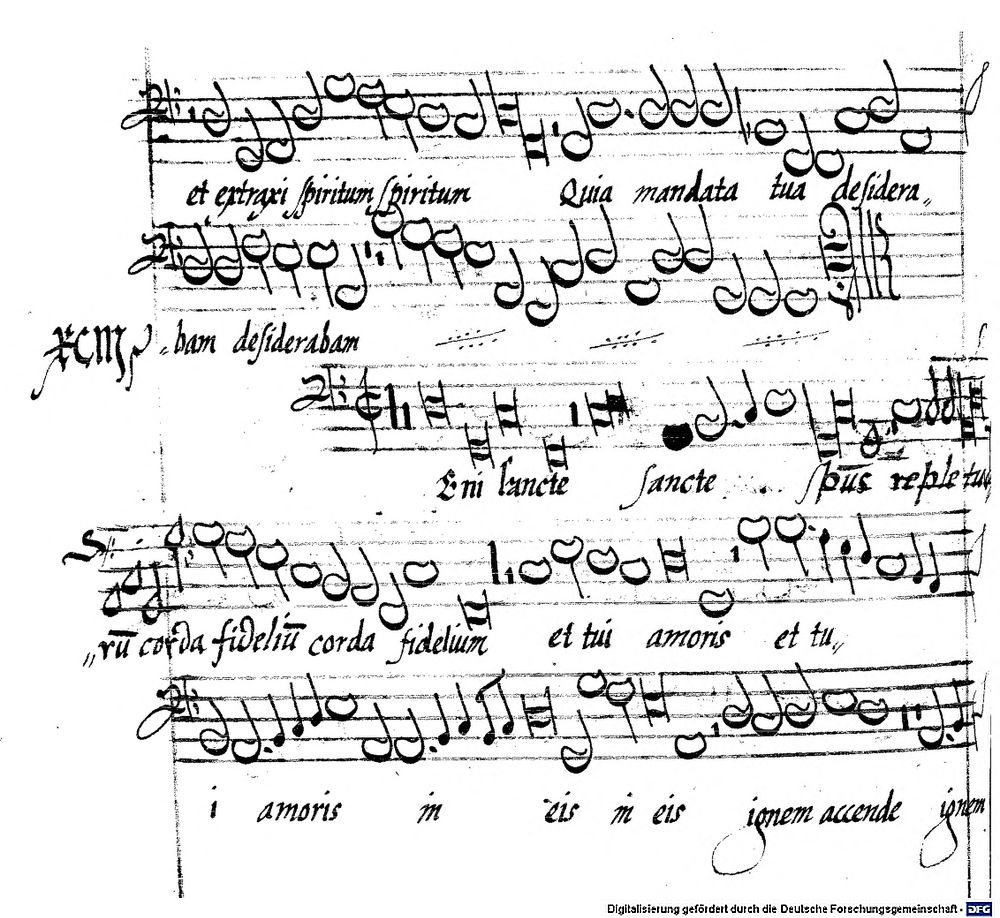 et extraxi spiritum spiritum Quia mandata tua desidera„
XCIIII „bam desiderabam
Eni sancte sancte spūs reple tuo
„rū corda fideliū corda fidelium et tui amoris et tu„
i amoris in eis in eis ignem accende ignem
Digitalisierung gefördert durch die Deutsche Forschungsgemeinschaft - DFG